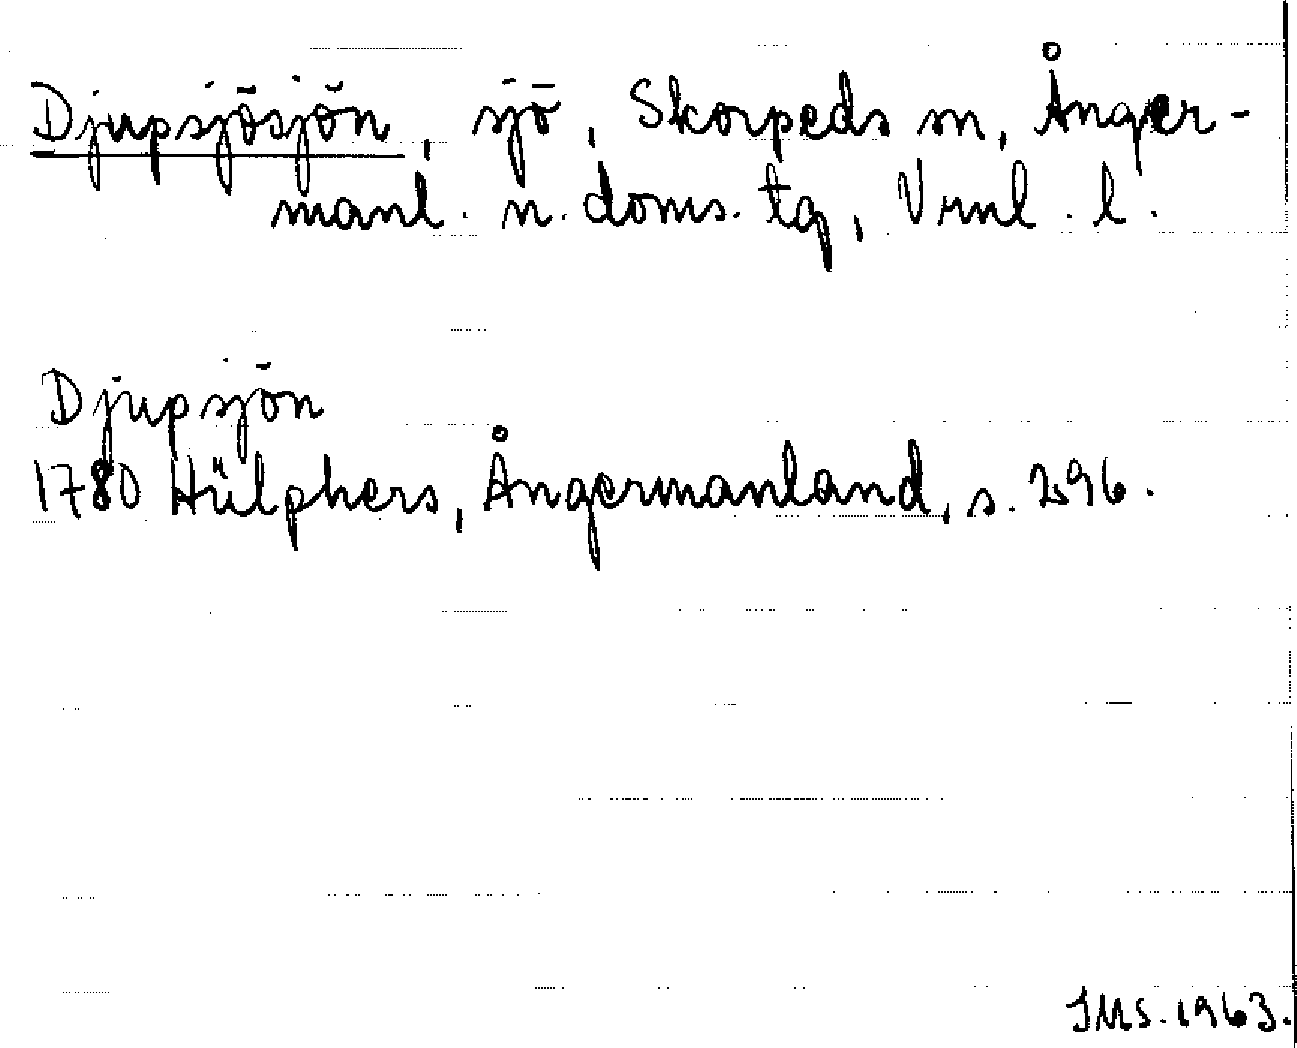 Djupsjösjön, sjö, Skorpeds sn, Ånger-
manl. n. doms. tg, Vrnl. l.
Djupsjön
1780 Hülphers, Ångermanland, s. 296.
IMS. 1963.